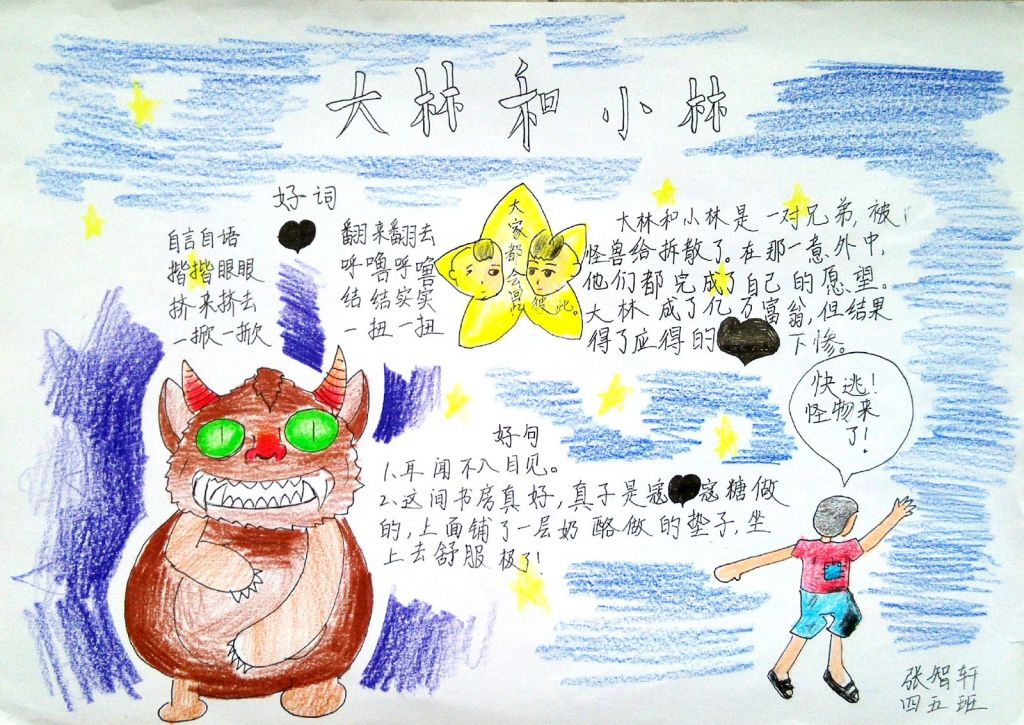 大林和小林
好词
自言自语
揩揩眼眼
挤来挤去
一掀一掀
翻来翻去
呼噜呼噜
结结实实
一扭一扭
大家都会忘彼此。
大林和小林是一对兄弟,被
怪兽给拆散了。在那一意外中,
他们都完成了自己的愿望。
大林成了亿万富翁,但结果
得了应得的 下惨。
快逃!
怪物来
了!
好句
1.耳闻不入目见。
2.这间书房真好,真子是寇 寇糖做
的,上面铺了一层奶酪做的垫子,坐
上去舒服极了!
张智轩
四五班